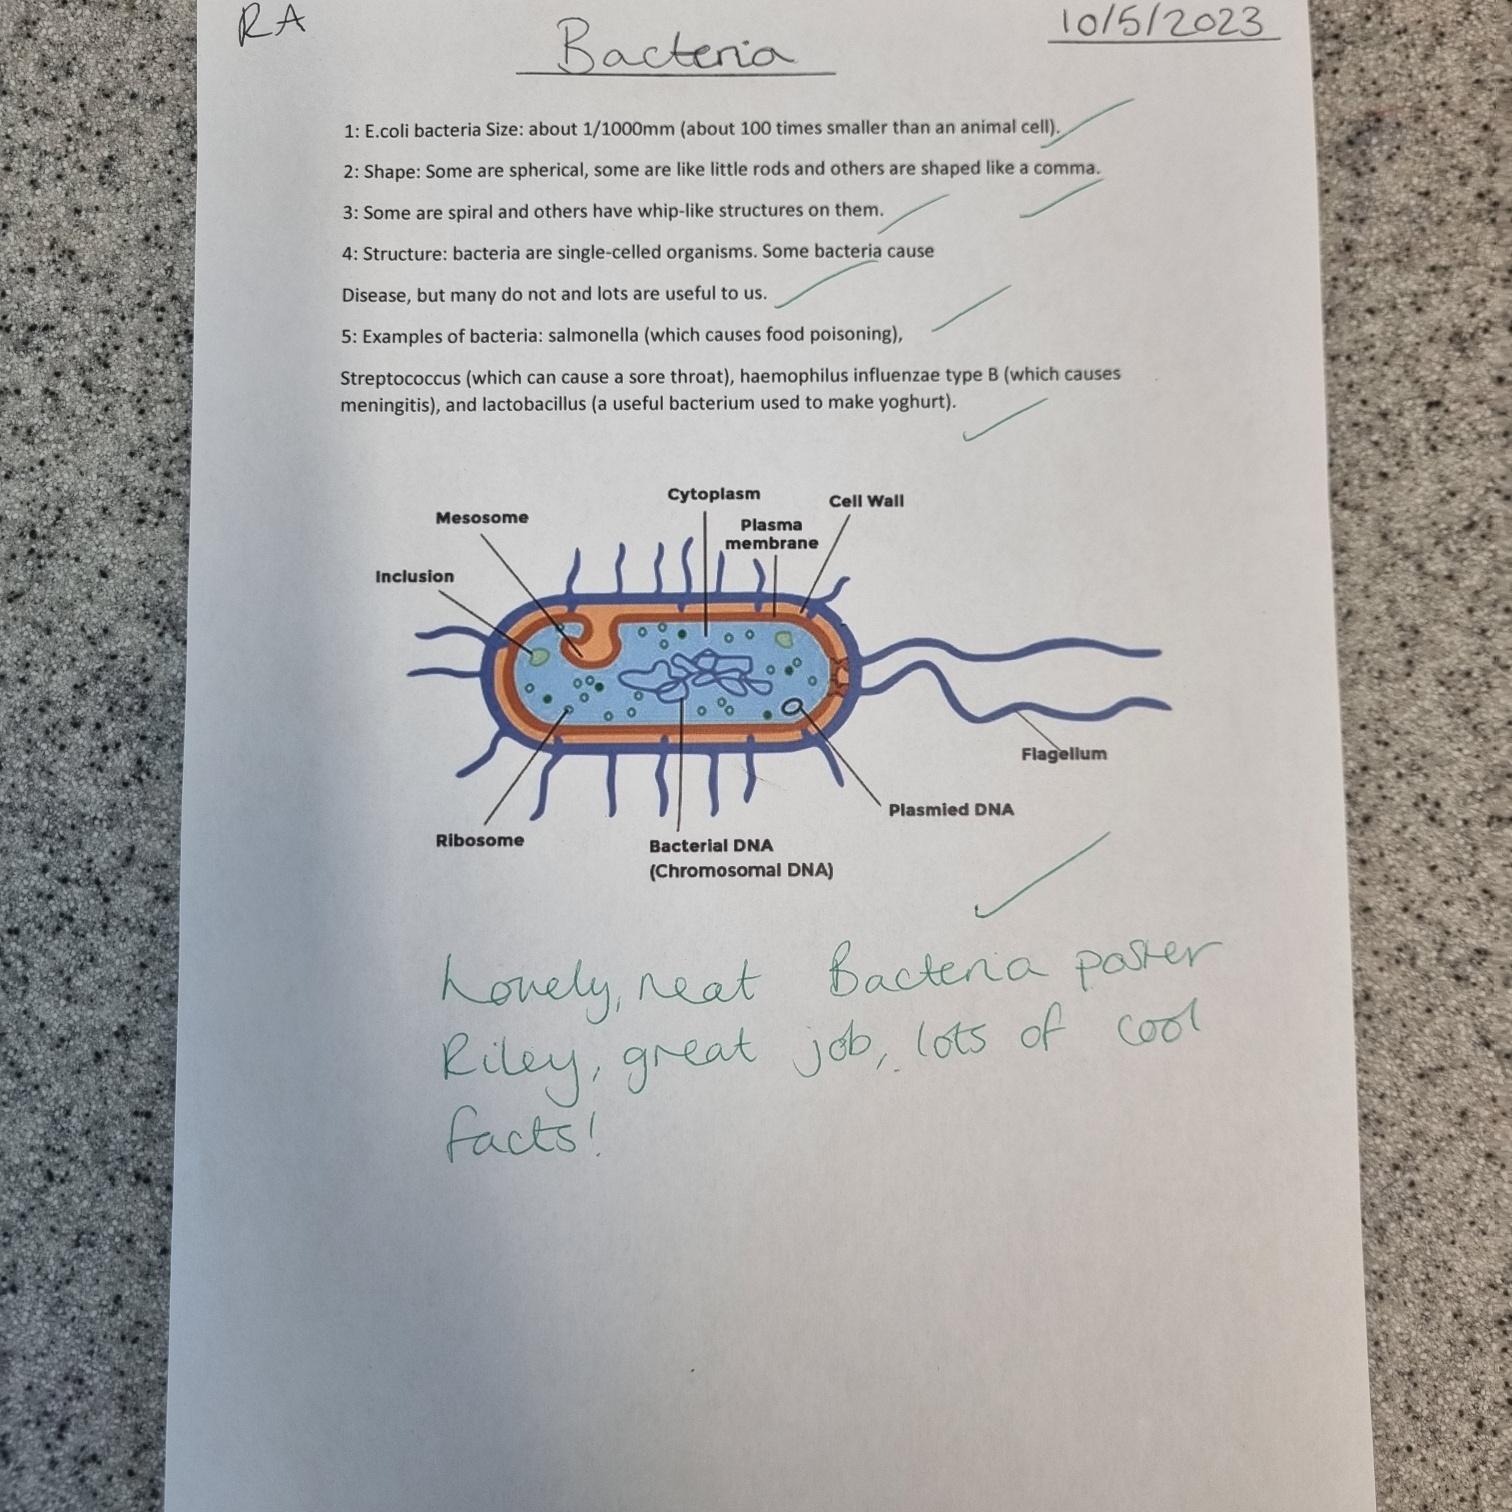 RA
10/5/2023
Bacteria
1: E.coli bacteria Size: about 1/1000mm (about 100 times smaller than an animal cell).
2: Shape: Some are spherical, some are like little rods and others are shaped like a comma.
3: Some are spiral and others have whip-like structures on them.
4: Structure: bacteria are single-celled organisms. Some bacteria cause
Disease, but many do not and lots are useful to us.
5: Examples of bacteria: salmonella (which causes food poisoning),
Streptococcus (which can cause a sore throat), haemophilus influenzae type B (which causes
meningitis), and lactobacillus (a useful bacterium used to make yoghurt).
Cytoplasm
Cell Wall
Mesosome
Plasma
membrane
Inclusion
Flagellum
Plasmied DNA
Ribosome
Bacterial DNA
(Chromosomal DNA)
Lovely, neat Bacteria poster
Riley, great job, lots of cool
facts!